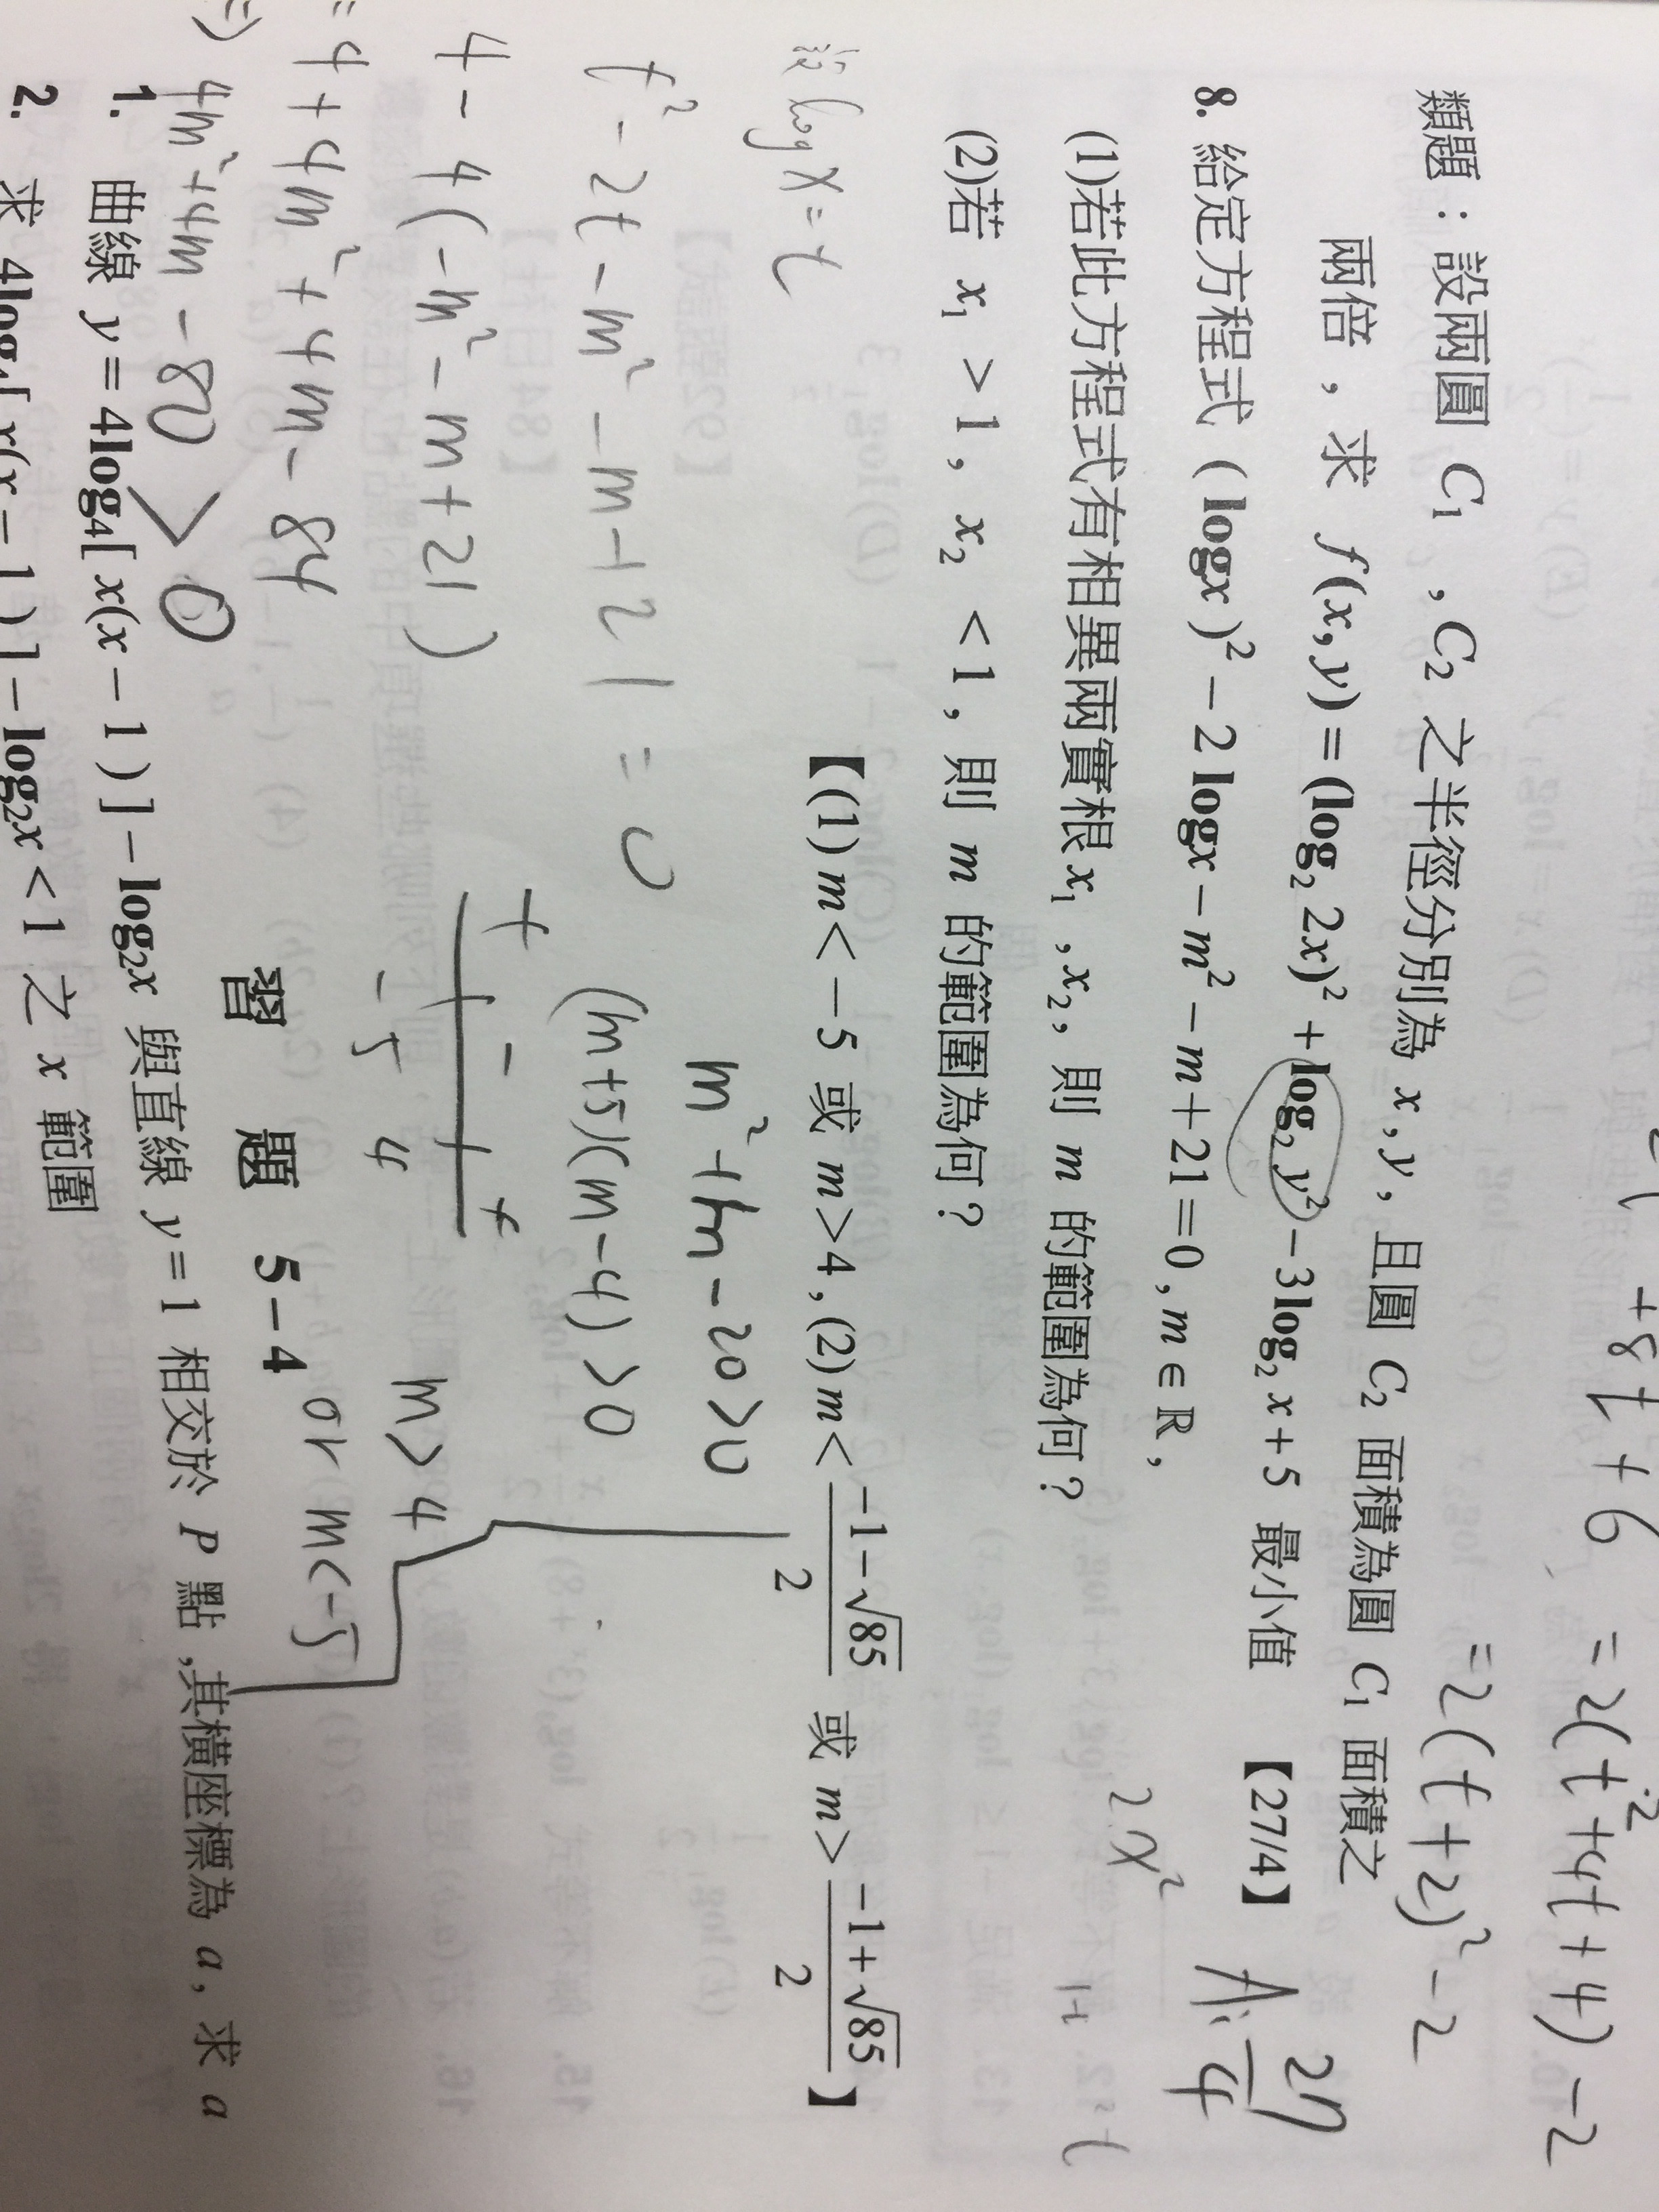 +8t+6 = 2(t²+4t+4)-2
=2(t+2)²-2
類題：設兩圓 C₁ , C₂ 之半徑分別為 x , y，且圓 C₂ 面積為圓 C₁ 面積之
兩倍，求 f(x,y)=(log₂ 2x)²+log₂ y²-3log₂ x+5 最小值 【27/4】
A: 27/4
2x²
8. 給定方程式 ( logx )²-2 logx-m²-m+21=0 , m∈ℝ，
(1)若此方程式有相異兩實根 x₁ , x₂，則 m 的範圍為何？
(2)若 x₁ >1，x₂ <1，則 m 的範圍為何？
【(1) m<-5 或 m>4 , (2) m< (-1-√85)/2 或 m> (-1+√85)/2 】
設 log x = t
t²-2t-m²-m+21=0
4-4(-m²-m+21)
=4+4m²+4m-84
⇒ 4m²+4m-80>0
m²+m-20>0
(m+5)(m-4)>0
+ - +
-5 4
m>4
or m<-5
習 題 5-4
1. 曲線 y=4log₄[ x(x-1)]-log₂x 與直線 y=1 相交於 P 點 ,其橫座標為 a，求 a
2. 求 4log₄[ x(x-1)]-log₂x<1 之 x 範圍